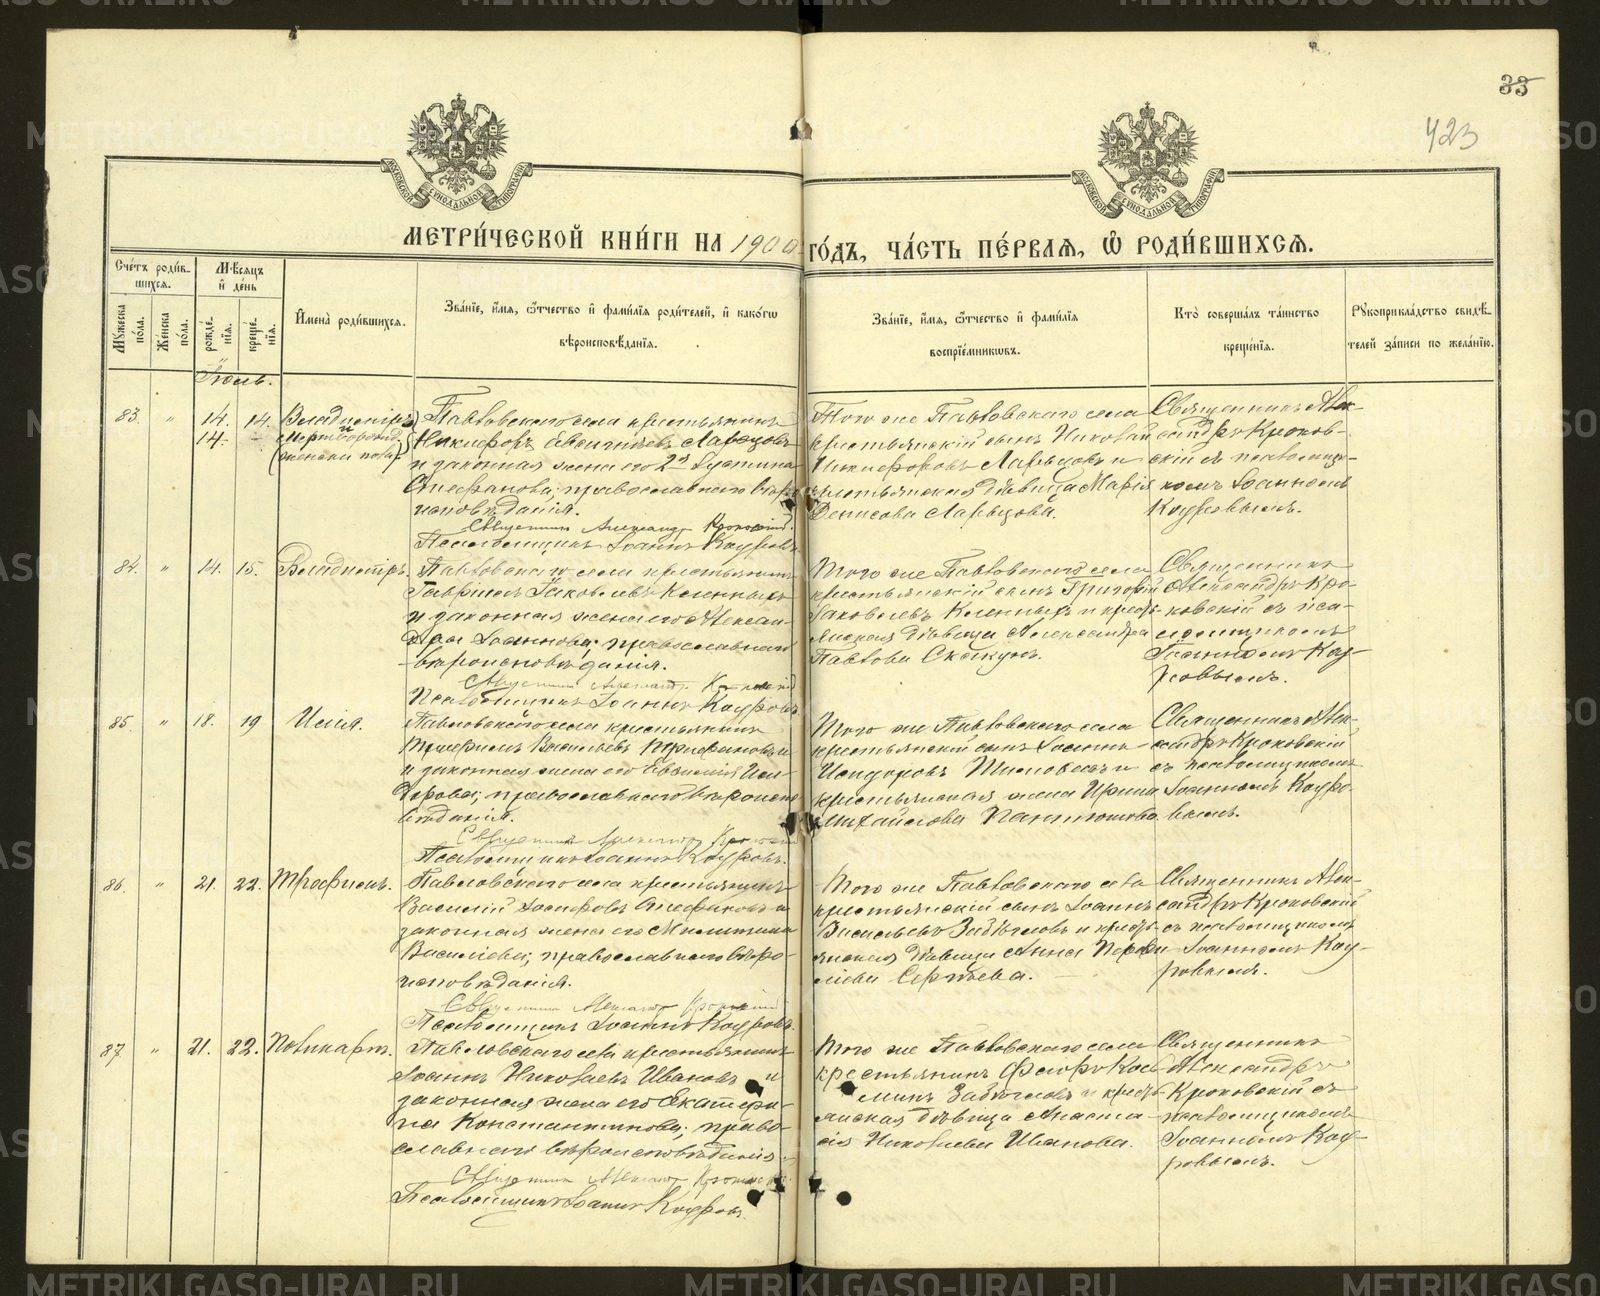 33
423
МОСКОВСКОЙ СѴНОДАЛЬНОЙ ТИПОГРАФІИ
МОСКОВСКОЙ СѴНОДАЛЬНОЙ ТИПОГРАФІИ
МЕТРИ́ЧЕСКОЙ КНИ́ГИ НА 1900 ГО́ДЪ, ЧА́СТЬ ПЕ́РВАЯ, Ѽ РОДИ́ВШИХСЯ.
Сче́тъ роди́в-
шихся.
Мѣ́сяцъ
и҆ день
Мꙋ́жеска по́ла.
Же́нска по́ла.
рожде́-
нїѧ.
креще́-
нїѧ.
И҆мена̀ роди́вшихся.
Зва́нїе, и҆́мѧ, ѻ҆́тчество и҆ фами́лїѧ роди́телей, и҆ како́гѡ
вѣроисповѣ́данїѧ.
Зва́нїе, и҆́мѧ, ѻ҆́тчество и҆ фами́лїѧ
воспрїе́мникѡвъ.
Кто̀ соверша́лъ та́инство
креще́нїѧ.
Рꙋкоприкла́дство свидѣ́-
телей за́писи по жела́нїю.
Іюль.
83. " 14. 14. Владиміръ
14. - и мертворожд.
(женска пола)
Павловскаго села крестьянинъ
Никифоръ
и законная жена его 2й Іустина
Стефанова; православнаго вѣро-
исповѣданія.
Священникъ Александръ Кроковскій
Псаломщикъ Іоаннъ Кауровъ.
Того же Павловскаго села
крестьянскій сынъ Николай
Никифоровъ Ларьцовъ и
крестьянская дѣвица Марія
Денисова Ларьцова.
Священникъ Алек-
сандръ Кроков-
скій съ псаломщи-
комъ Іоанномъ
Кауровымъ.
84. " 14. 15. Владиміръ.
Павловскаго села крестьянинъ
Гавріилъ Іаковлевъ Коленныхъ
и законная жена его Алексан-
дра Іоаннова; православнаго
вѣроисповѣданія.
Священникъ Александръ Кроковскій
Псаломщикъ Іоаннъ Кауровъ.
Того же Павловскаго села
крестьянскій сынъ Григорій
Іаковлевъ Коленныхъ и кресть-
янская дѣвица Александра
Павлова Скакунъ.
Священникъ
Александръ Кро-
ковскій съ пса-
ломщикомъ
Іоанномъ Кау-
ровымъ.
85. " 18. 19 Илія.
Павловскаго села крестьянинъ
Трифилъ Васильевъ
и законная жена его Евфимія Иси-
дорова; православнаго вѣроиспо-
вѣданія.
Священникъ Александръ Кроковскій
Псаломщикъ Іоаннъ Кауровъ.
Того же Павловскаго села
крестьянскій сынъ Іоаннъ
Исидоровъ и
крестьянская жена Ирина
Михайлова
Священникъ Алек-
сандръ Кроковскій
съ псаломщикомъ
Іоанномъ Кауро-
вымъ.
86. " 21. 22. Трофимъ.
Павловскаго села крестьянинъ
Василій Іосифовъ Стефановъ и
законная жена его Милитина
Васильева; православнаго вѣро-
исповѣданія.
Священникъ Александръ Кроковскій
Псаломщикъ Іоаннъ Кауровъ.
Того же Павловскаго села
крестьянскій сынъ Іоаннъ
Васильевъ Забѣгловъ и кресть-
янская дѣвица Анна
Сергѣева.
Священникъ Алек-
сандръ Кроковскій
съ псаломщикомъ
Іоанномъ Кау-
ровымъ.
87 " 21. 22. Поликарпъ.
Павловскаго села крестьянинъ
Іоаннъ Николаевъ Ивановъ и
законная жена его Екатери-
на Константинова; право-
славнаго вѣроисповѣданія.
Священникъ Александръ Кроковскій
Псаломщикъ Іоаннъ Кауровъ.
Того же Павловскаго села
крестьянинъ Феодоръ Кось-
минъ Забѣгловъ и кресть-
янская дѣвица Анаста-
сія Николаева Иванова.
Священникъ
Александръ
Кроковскій съ
псаломщикомъ
Іоанномъ Кау-
ровымъ.
METRIKI.GASO-URAL.RU